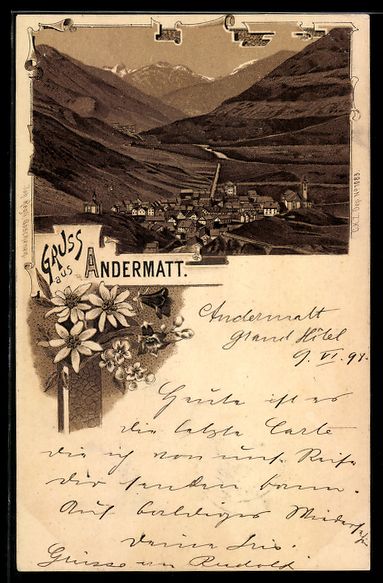 GRUSS
aus
ANDERMATT.
Andermatt
Grand Hôtel
9. VI. 97.
Heute ist es
die letzte Carte
die ich von uns. Reise
dir senden kann.
Auf baldiges Wiedersehn
deine
Grüsse an Rudolf